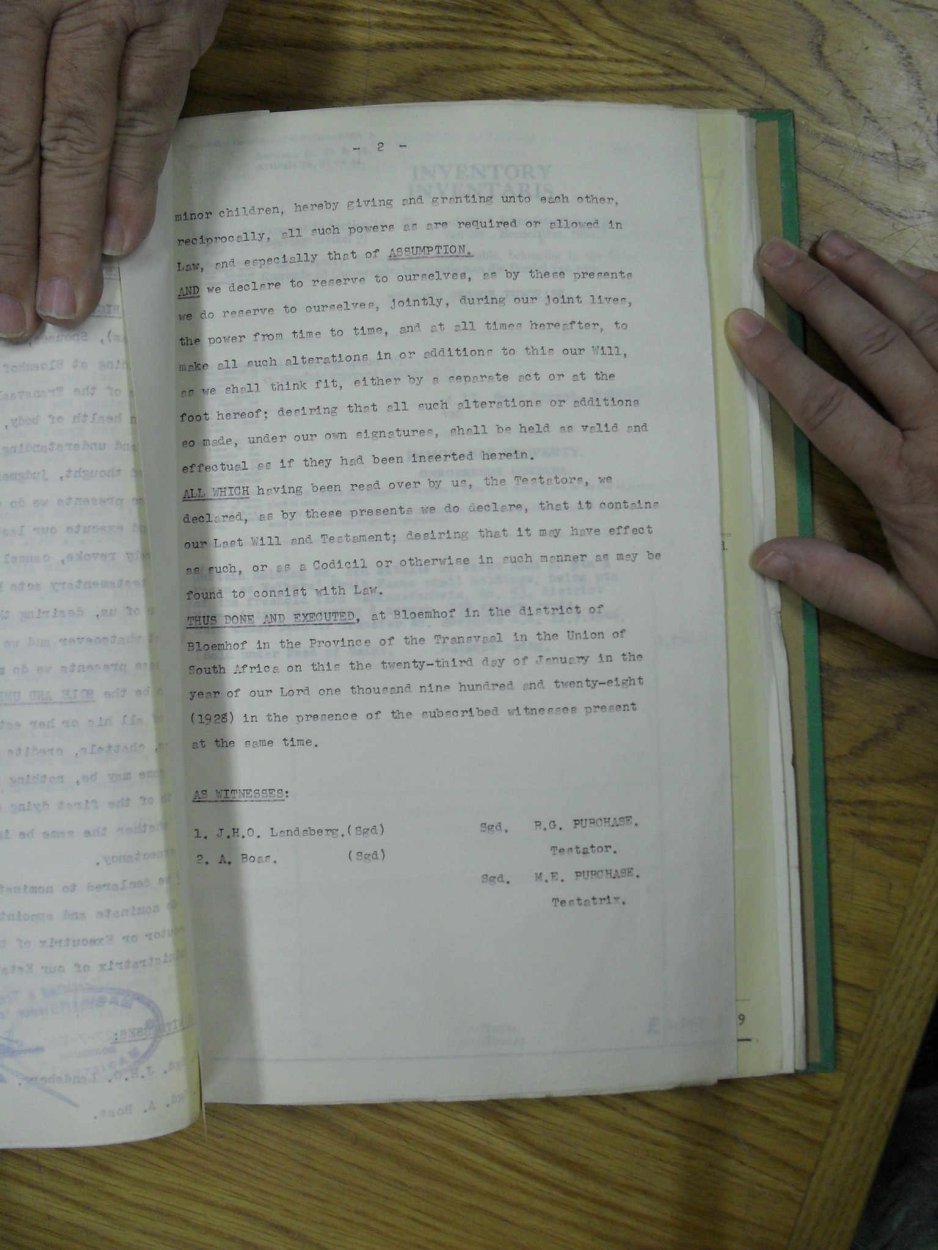 - 2 -
INVENTORY
INVENTARIS
minor children, hereby giving and granting unto each other,
reciprocally, all such powers as are required or allowed in
Law, and especially that of ASSUMPTION.
AND we declare to reserve to ourselves, as by these presents
we do reserve to ourselves, jointly, during our joint lives,
the power from time to time, and at all times hereafter, to
make all such alterations in or additions to this our Will,
as we shall think fit, either by a separate act or at the
foot hereof; desiring that all such alterations or additions
so made, under our own signatures, shall be held as valid and
effectual as if they had been inserted herein.
ALL WHICH having been read over by us, the Testators, we
declared, as by these presents we do declare, that it contains
our Last Will and Testament; desiring that it may have effect
as such, or as a Codicil or otherwise in such manner as may be
found to consist with Law.
THUS DONE AND EXECUTED, at Bloemhof in the district of
Bloemhof in the Province of the Transvaal in the Union of
South Africa on this the twenty-third day of January in the
year of our Lord one thousand nine hundred and twenty-eight
(1928) in the presence of the subscribed witnesses present
at the same time.
AS WITNESSES:
1. J.H.O. Landsberg.(Sgd) Sgd. R.G. PURCHASE.
Testator.
2. A. Boas. (Sgd)
Sgd. M.E. PURCHASE.
Testatrix.
9